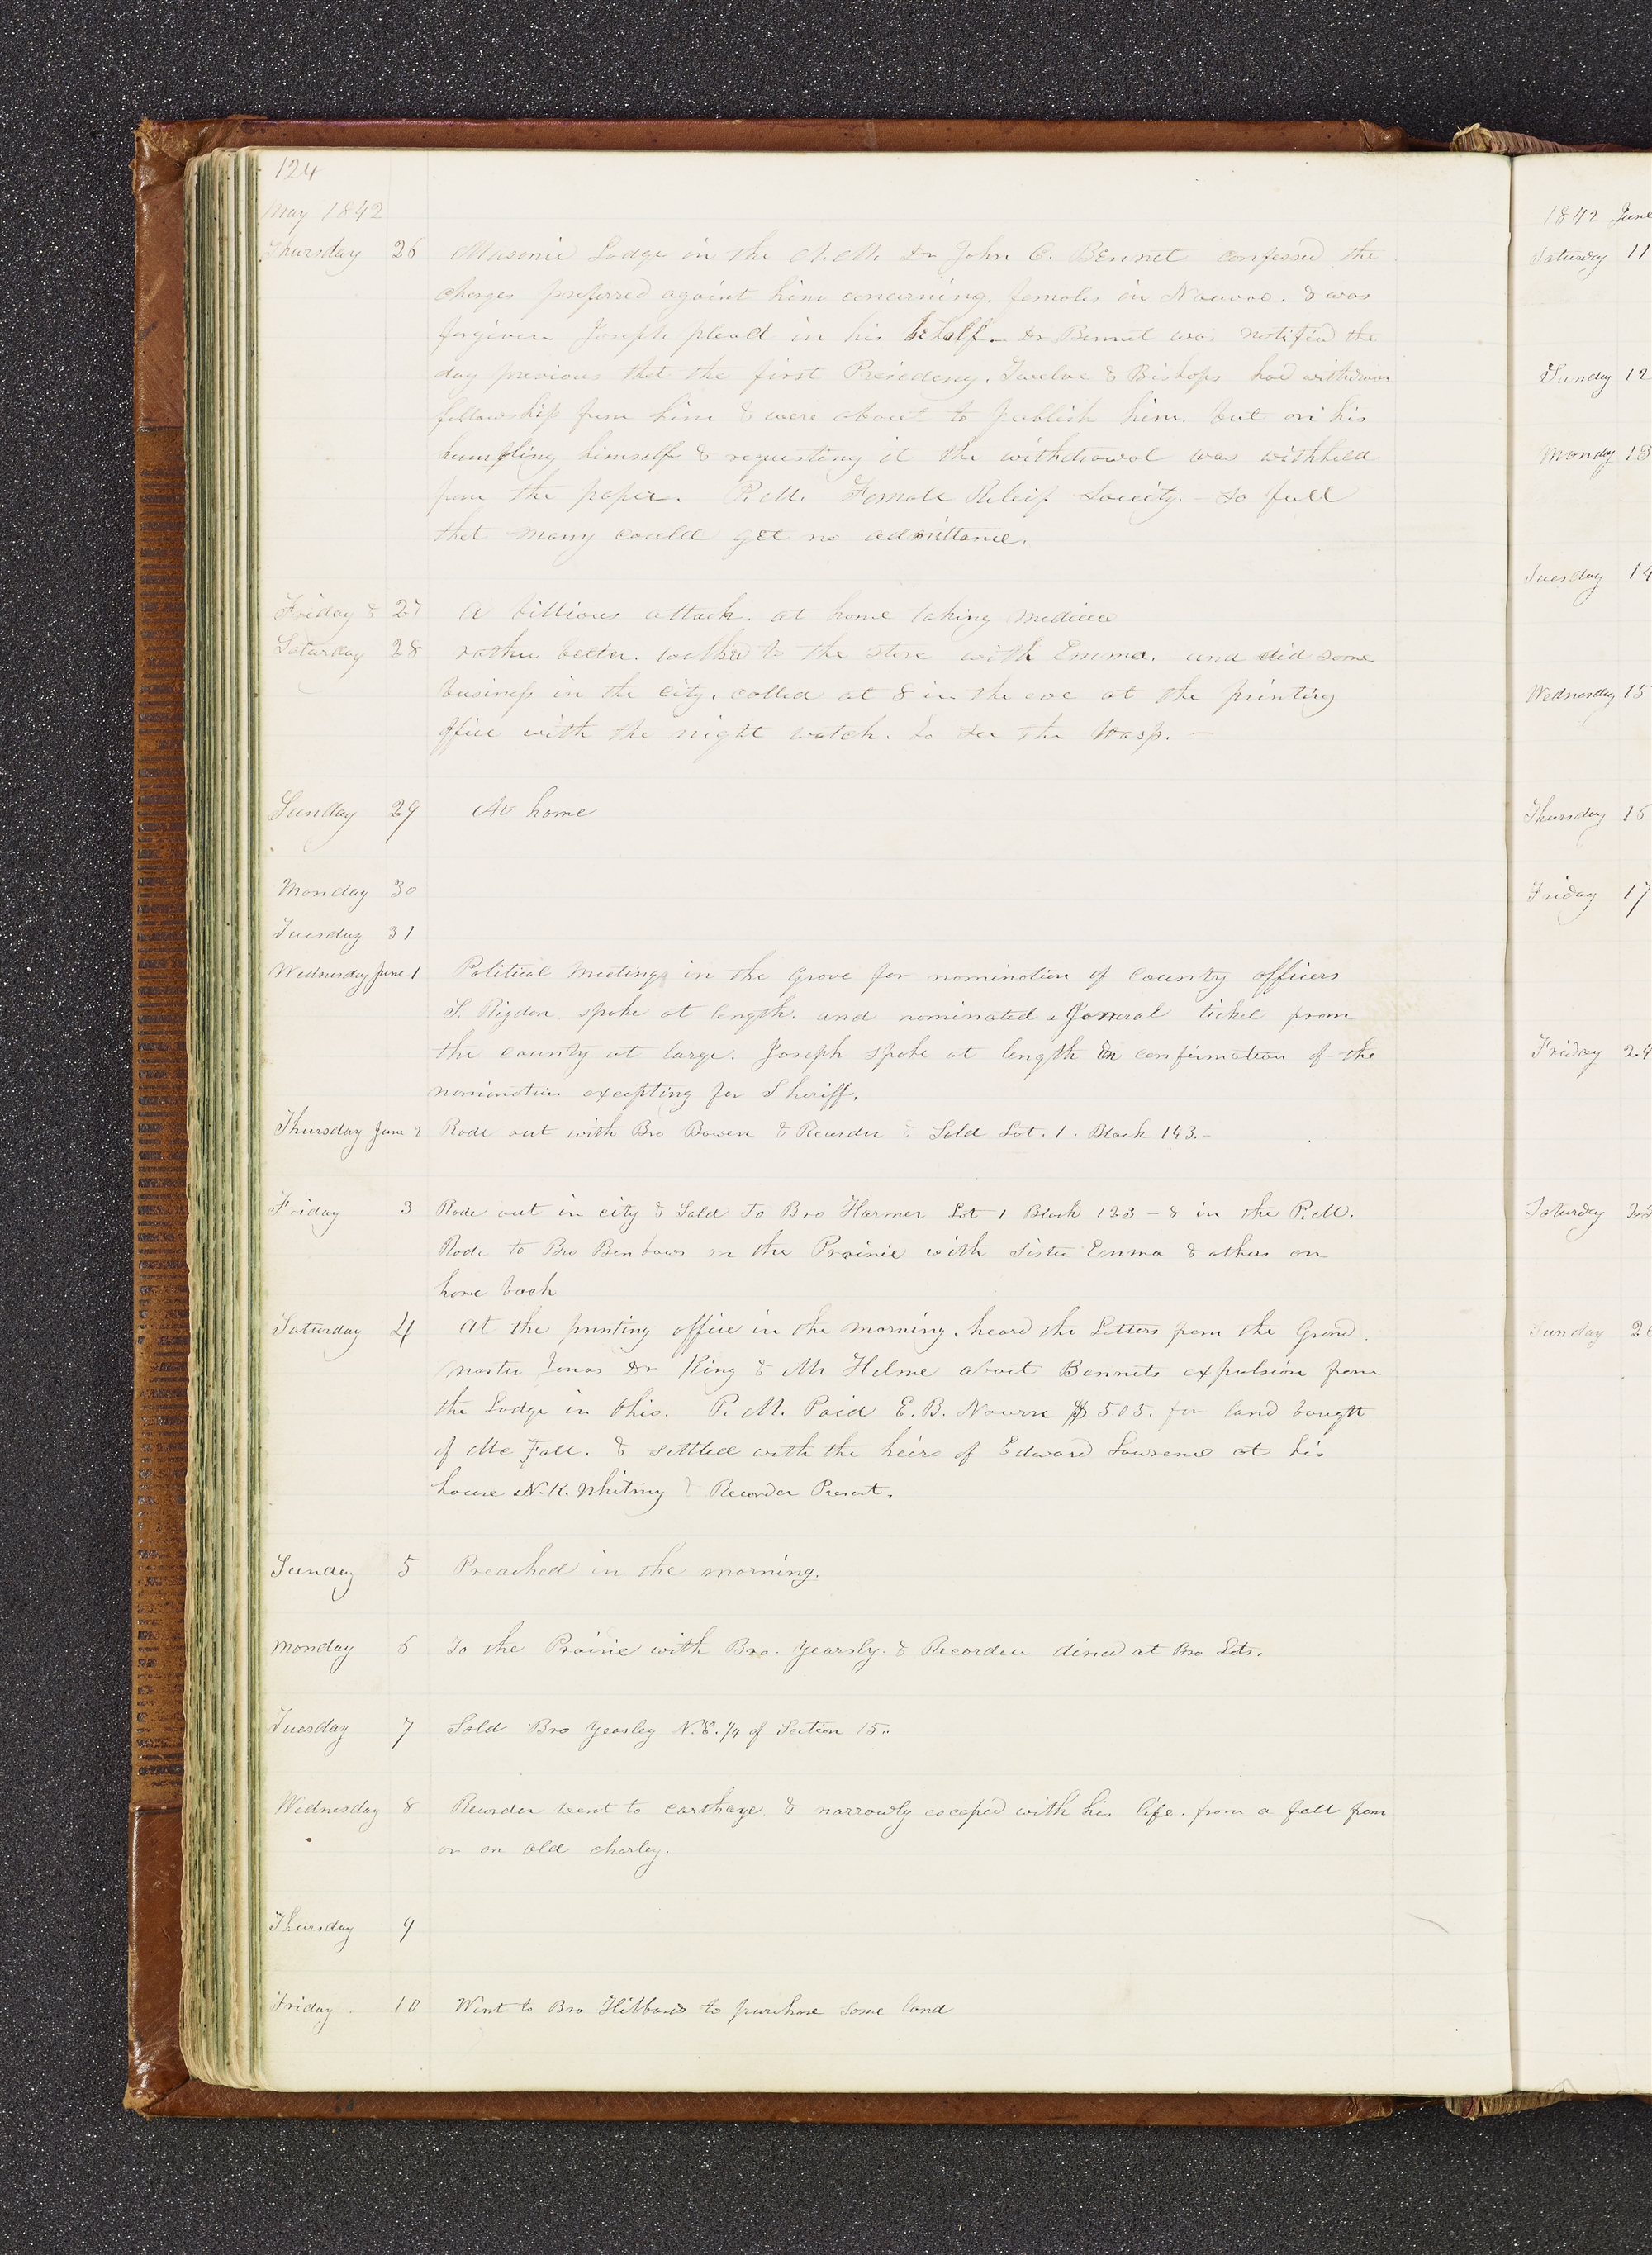 124
May 1842
Thursday 26 Masonic Lodge in the A.M. Dr John C. Bennet confessed the
charges preferred against him concerning females in Nauvoo. & was
forgiven Joseph plead in his behalf.— Dr Bennet was notified the
day previous that the first Presidency. Twelve & Bishops had withdrawn
fellowship from him & were about to publish him. but on his
humbling himself & requesting it the withdrawal was withheld
from the paper. P.M. Female Releif Society.— so full
that many could get no admittance.
Friday & 27 A billious attack. at home taking medicen
Saturday 28 rather better. walked to the store with Emma. and did some
business in the city. called at 8 in the eve at the printing
office with the night watch. to see the Wasp. —
Sunday 29 At home
Monday 30
Tuesday 31
Wednesday June 1 Political meeting in the Grove for nomination of County officers
S. Rigdon spoke at length. and nominated a General ticket from
the county at large. Joseph spoke at length in confirmation of the
nomination excepting for Sheriff.
Thursday June 2 Rode out with Bro Bowen & Recorder & Sold Lot. 1. Block 143.—
Friday 3 Rode out in city & Sold To Bro Harmer Lot 1 Block 123 — & in the P.M.
Rode to Bro Benbows on the Prairie with Sister Emma & others on
horse back
Saturday 4 At the printing office in the morning. heard the Letters from the Grand
master Jonas Dr King & Mr Helme about Bennets expulsion from
the Lodge in Ohio. P.M. Paid E.B. Nourse $505. for land bought
of Mc Fall. & settled with the heirs of Edward Lawrence at his
house N.K. Whitney & Recorder Present.
Sunday 5 Preached in the morning.
Monday 6 To the Prairie with Bro. Yearsly. & Recorder dined at Bro Lots.
Tuesday 7 Sold Bro Yearsley N.E. 1/4 of Section 15..
Wednesday 8 Recorder went to carthage. & narrowly escaped with his life. from a fall from
or on old charley.
Thursday 9
Friday 10 Went to Bro Hibbards to purchase some land
1842 June
Saturday 11
Sunday 12
Monday 13
Tuesday 14
Wednesday 15
Thursday 16
Friday 17
Friday 24
Saturday
Sunday